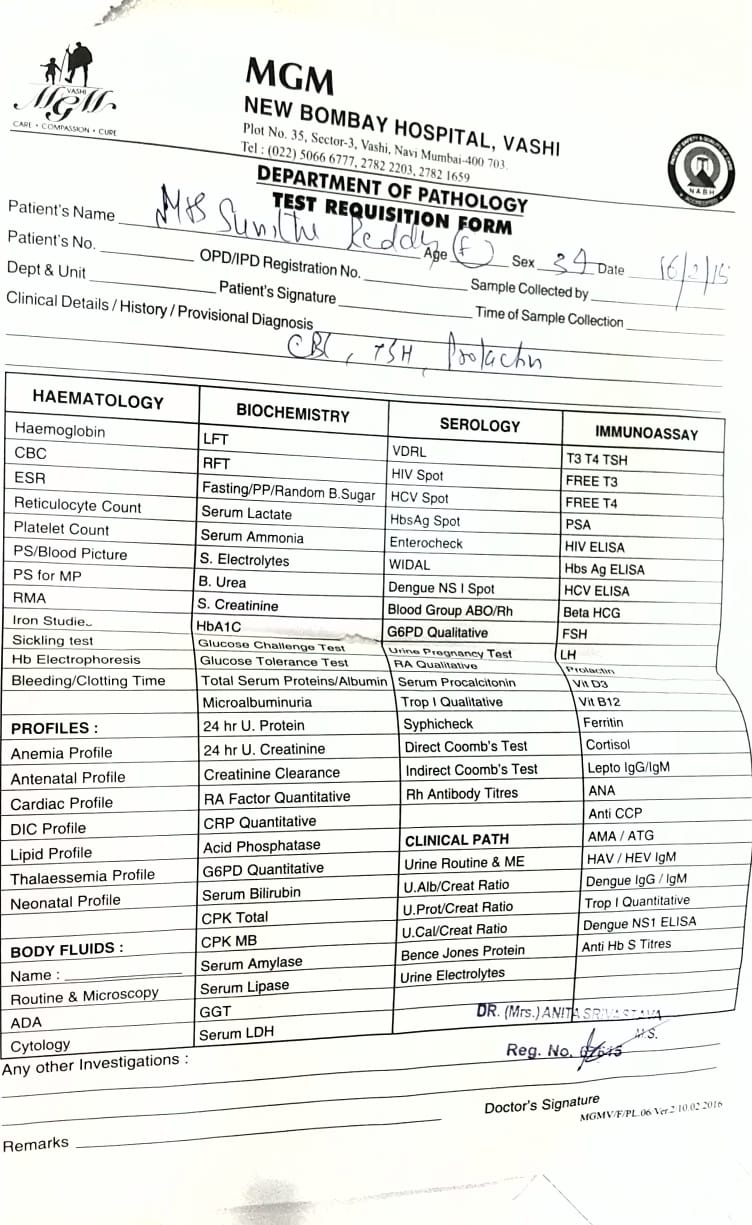 VASHI
MGM
CARE • COMPASSION • CURE
MGM
NEW BOMBAY HOSPITAL, VASHI
Plot No. 35, Sector-3, Vashi, Navi Mumbai-400 703.
Tel : (022) 5066 6777, 2782 2203, 2782 1659
NABH
DEPARTMENT OF PATHOLOGY
TEST REQUISITION FORM
Patient's Name Mrs Sunitha Reddy Age (F) Sex 34 Date 16/2/15
Patient's No. OPD/IPD Registration No. Sample Collected by
Dept & Unit Patient's Signature Time of Sample Collection
Clinical Details / History / Provisional Diagnosis
CBC, TSH, Prolactin
HAEMATOLOGY BIOCHEMISTRY SEROLOGY IMMUNOASSAY
Haemoglobin LFT VDRL T3 T4 TSH
CBC RFT HIV Spot FREE T3
ESR Fasting/PP/Random B.Sugar HCV Spot FREE T4
Reticulocyte Count Serum Lactate HbsAg Spot PSA
Platelet Count Serum Ammonia Enterocheck HIV ELISA
PS/Blood Picture S. Electrolytes WIDAL Hbs Ag ELISA
PS for MP B. Urea Dengue NS I Spot HCV ELISA
RMA S. Creatinine Blood Group ABO/Rh Beta HCG
Iron Studies HbA1C G6PD Qualitative FSH
Sickling test Glucose Challenge Test Urine Pregnancy Test LH
Hb Electrophoresis Glucose Tolerance Test RA Qualitative Prolactin
Bleeding/Clotting Time Total Serum Proteins/Albumin Serum Procalcitonin Vit D3
Microalbuminuria Trop I Qualitative Vit B12
PROFILES : 24 hr U. Protein Syphicheck Ferritin
Anemia Profile 24 hr U. Creatinine Direct Coomb's Test Cortisol
Antenatal Profile Creatinine Clearance Indirect Coomb's Test Lepto IgG/IgM
Cardiac Profile RA Factor Quantitative Rh Antibody Titres ANA
DIC Profile CRP Quantitative Anti CCP
Lipid Profile Acid Phosphatase CLINICAL PATH AMA / ATG
Thalaessemia Profile G6PD Quantitative Urine Routine & ME HAV / HEV IgM
Neonatal Profile Serum Bilirubin U.Alb/Creat Ratio Dengue IgG / IgM
CPK Total U.Prot/Creat Ratio Trop I Quantitative
BODY FLUIDS : CPK MB U.Cal/Creat Ratio Dengue NS1 ELISA
Name : Serum Amylase Bence Jones Protein Anti Hb S Titres
Routine & Microscopy Serum Lipase Urine Electrolytes
ADA GGT
Cytology Serum LDH
DR. (Mrs.) ANITA SRIVASTAVA
M.S.
Reg. No.
Any other Investigations :
Doctor's Signature
MGMV/F/PL.06/Ver.2 10.02.2016
Remarks